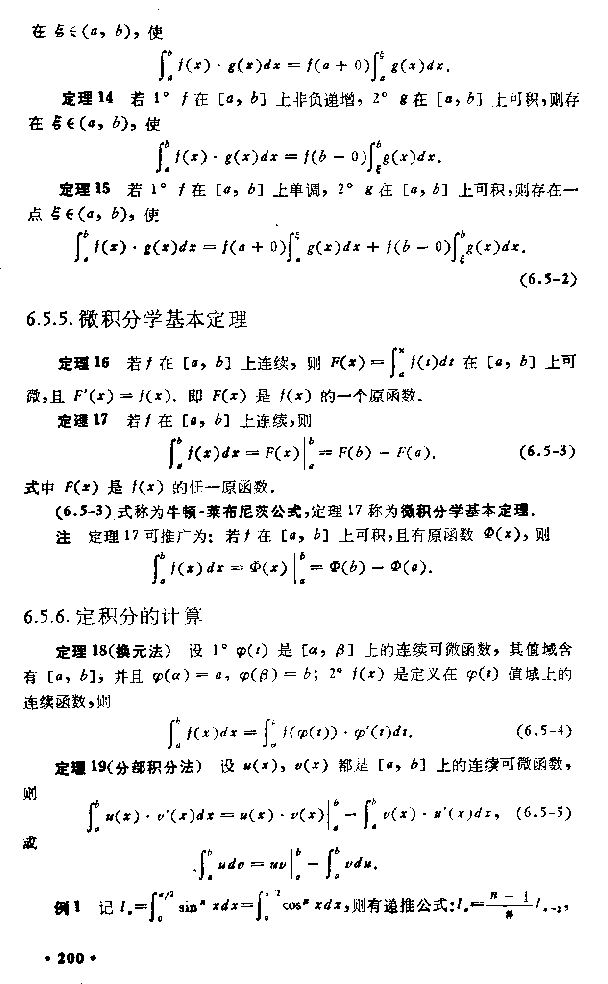 在 ξ∈(a, b), 使
∫_a^b f(x)·g(x)dx = f(a + 0)∫_a^ξ g(x)dx.
定理14 若 1° f 在 [a, b] 上非负递增, 2° g 在 [a, b] 上可积,则存
在 ξ∈(a, b), 使
∫_a^b f(x)·g(x)dx = f(b − 0)∫_ξ^b g(x)dx.
定理15 若 1° f 在 [a, b] 上单调, 2° g 在 [a, b] 上可积,则存在一
点 ξ∈(a, b), 使
∫_a^b f(x)·g(x)dx = f(a + 0)∫_a^ξ g(x)dx + f(b − 0)∫_ξ^b g(x)dx.
(6.5-2)
6.5.5. 微积分学基本定理
定理16 若 f 在 [a, b] 上连续, 则 F(x) = ∫_a^x f(t)dt 在 [a, b] 上可
微,且 F′(x) = f(x). 即 F(x) 是 f(x) 的一个原函数.
定理17 若 f 在 [a, b] 上连续,则
∫_a^b f(x)dx = F(x)|_a^b = F(b) − F(a). (6.5-3)
式中 F(x) 是 f(x) 的任一原函数.
(6.5-3)式称为牛顿-莱布尼茨公式,定理17称为微积分学基本定理.
注 定理17可推广为: 若 f 在 [a, b] 上可积,且有原函数 Φ(x), 则
∫_a^b f(x)dx = Φ(x)|_a^b = Φ(b) − Φ(a).
6.5.6. 定积分的计算
定理18(换元法) 设 1° φ(t) 是 [α, β] 上的连续可微函数, 其值域含
有 [a, b], 并且 φ(α) = a, φ(β) = b; 2° f(x) 是定义在 φ(t) 值域上的
连续函数,则
∫_a^b f(x)dx = ∫_α^β f(φ(t))·φ′(t)dt. (6.5-4)
定理19(分部积分法) 设 u(x), v(x) 都是 [a, b] 上的连续可微函数,
则
∫_a^b u(x)·v′(x)dx = u(x)·v(x)|_a^b − ∫_a^b v(x)·u′(x)dx, (6.5-5)
或
∫_a^b udv = uv|_a^b − ∫_a^b vdu.
例1 记 I_n = ∫_0^{π/2} sin^n xdx = ∫_0^{π/2} cos^n xdx,则有递推公式: I_n = (n − 1)/n I_{n−2},
• 200 •